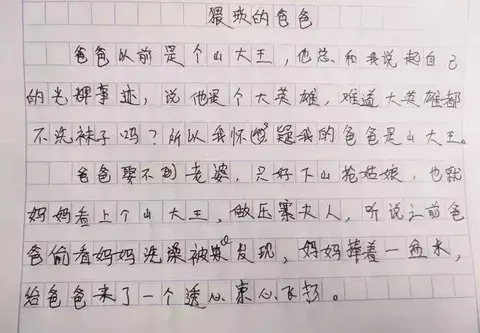 猥琐的爸爸
爸爸以前是个山大王，他总和我说起自己
的光辉事迹，说他是个大英雄，难道大英雄都
不洗袜子吗？所以我怀疑我的爸爸是山大王。
爸爸娶不到老婆，只好下山抢姑娘，也就
妈妈看上个山大王，做压寨夫人，听说之前爸
爸偷看妈妈洗澡被发现，妈妈捧着一盆水，
给爸爸来了一个透心凉心飞扬。